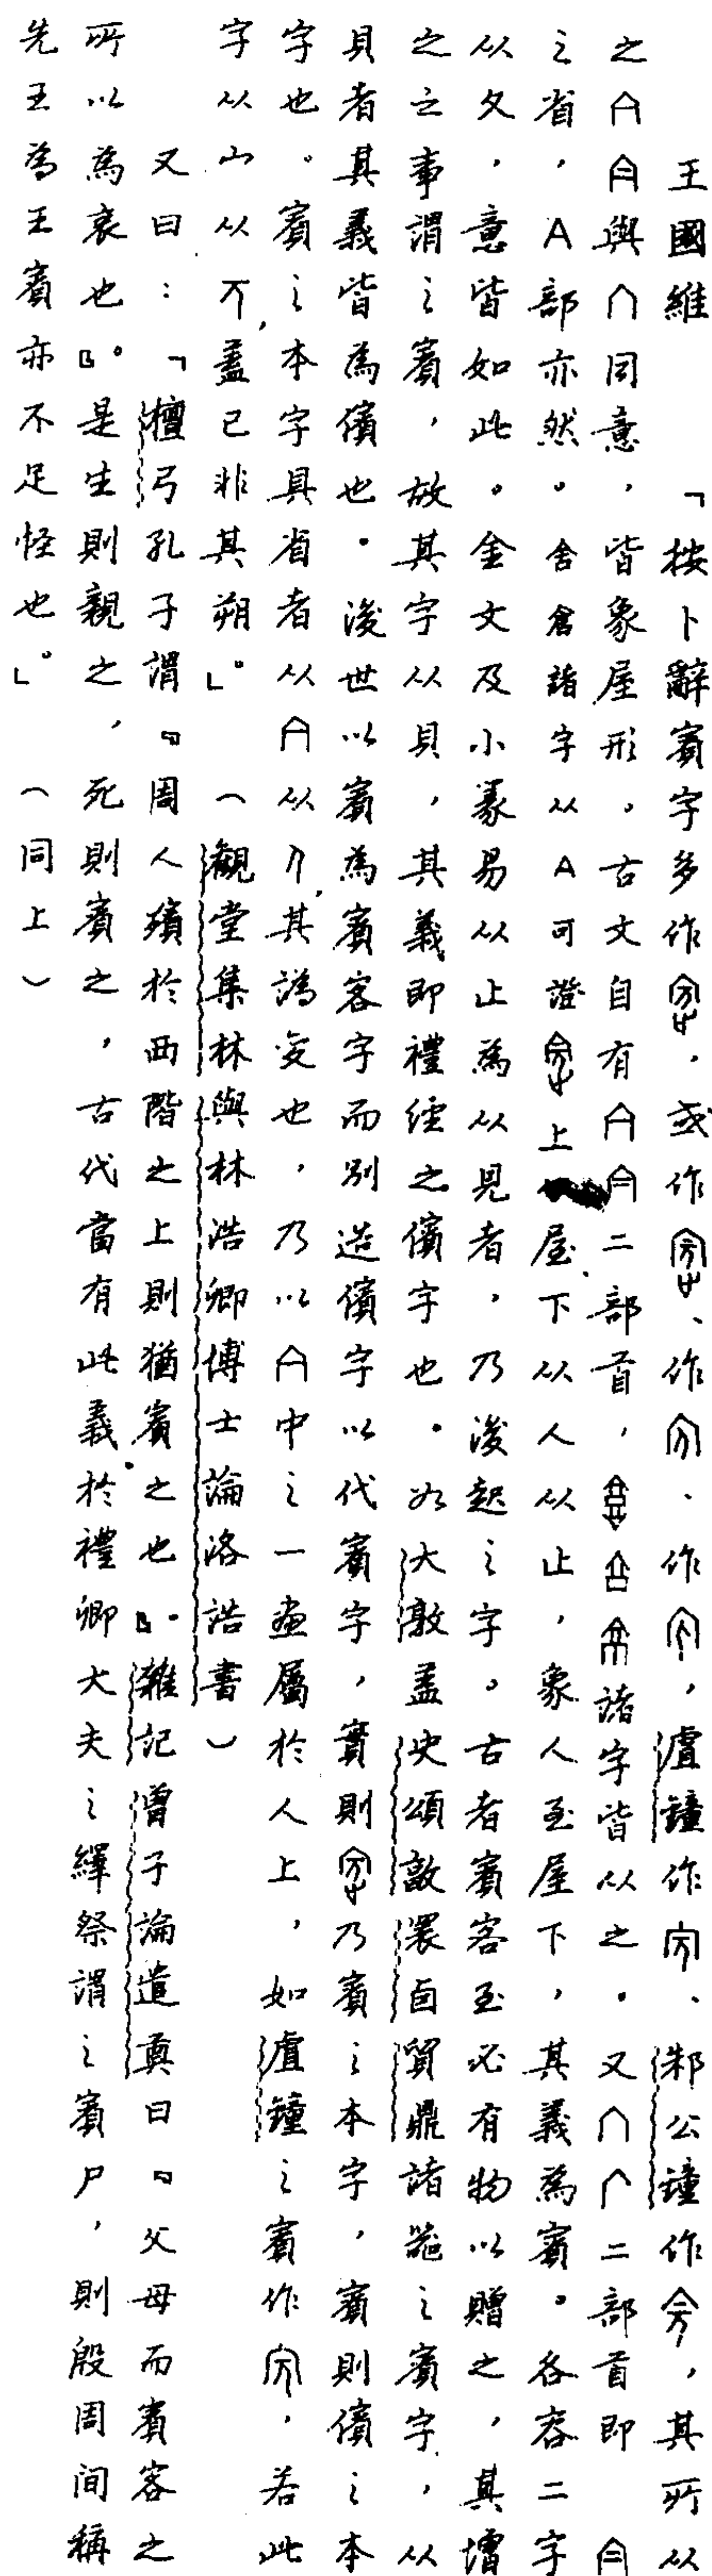 王國維 「按卜辭賓字多作，或作、作、作，虘鐘作、邾公鐘作，其所从
之與同意，皆象屋形。古文自有二部首，諸字皆从之。又二部首即
之省，A部亦然。舍倉諸字从A可證上屋下从人从止，象人至屋下，其義為賓。各客二字
从夂，意皆如此。金文及小篆易从止為从貝者，乃後起之字。古者賓客至必有物以贈之，其
之之事謂之賓，故其字从貝，其義即禮經之儐字也。如大敦蓋史頌敦睘卣貿鼎諸器之賓字，从
貝者其義皆為儐也。後世以賓為賓客字而別造儐字以代賓字，實則乃賓之本字，賓則儐之本
字也。賓之本字其省者从从，其譌変也，乃以中之一畫屬於人上，如虘鐘之賓作，若此
字从宀从丏，蓋已非其朔。」（觀堂集林與林浩卿博士論洛誥書）
又曰：「檀弓孔子謂『周人殯於西階之上則猶賓之也』。雜記曾子論遣奠曰『父母而賓客之
所以為哀也』。是生則親之，死則賓之，古代當有此義於禮卿大夫之繹祭謂之賓尸，則殷周间稱
先王為王賓亦不足怪也。」（同上）